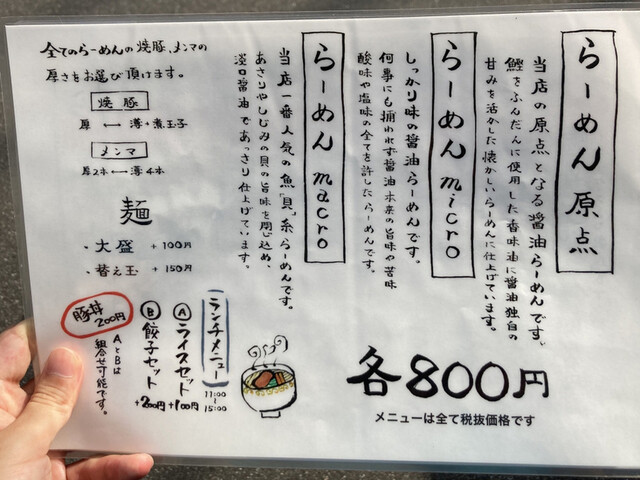 らーめん原点
当店の原点となる醤油らーめんです。
鰹をふんだんに使用した香味油に醤油独自の
甘みを活かした懐かしいらーめんに仕上げています。
らーめん micro
しっかり味の醤油らーめんです。
何事にも捕われず醤油本来の旨味や苦味
酸味や塩味の全てを許したらーめんです。
らーめん macro
当店一番人気の魚「貝」系らーめんです。
あさりやしじみの貝の旨味を閉じ込め、
淡口醤油であっさり仕上げています。
各800円
メニューは全て税抜価格です
全てのらーめんの焼豚、メンマの
厚さをお選び頂けます。
焼豚
厚 ←→ 薄+煮玉子
メンマ
厚2本 ←→ 薄4本
麺
・大盛 +100円
・替え玉 +150円
ランチメニュー
11:00~15:00
Ⓐライスセット +100円
Ⓑ餃子セット +200円
AとBは
組合せ可能です。
豚丼
200円